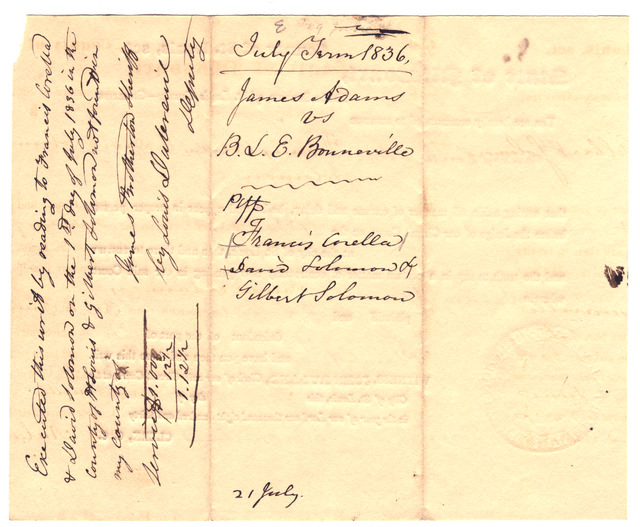 Executed this writ by reading to Francis Corella
& David Solomon on the 1st day of July 1836 in the
County of St Louis & Gilbert Solomon not found in
my County of
James Brotherton Sheriff
by Louis Deputy
services $1.00
12½
1.12½
July Term 1836,
James Adams
vs
B. L. E. Bonneville
Pffs
Francis Corella
David Solomon &
Gilbert Solomon
21 July.